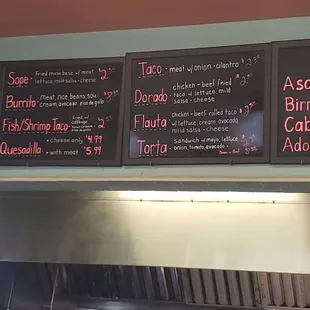 Sope - Fried masa base w/ meat
lettuce, mild salsa - cheese
Burrito - Meat, rice, beans, sour
cream, avocado, pico de gallo
Fish/Shrimp Taco
cabbage
Quesadilla - cheese only $4.99
- with meat $5.99
Taco - meat w/ onion - cilantro
Dorado - chicken - beef fried
taco w/ lettuce, mild
salsa - cheese
Flauta - chicken - beef rolled taco
w/ lettuce, cream, avocado
mild salsa - cheese
Torta - Sandwich w/ mayo, lettuce
onion, tomato, avocado
Asa
Birr
Cab
Ado